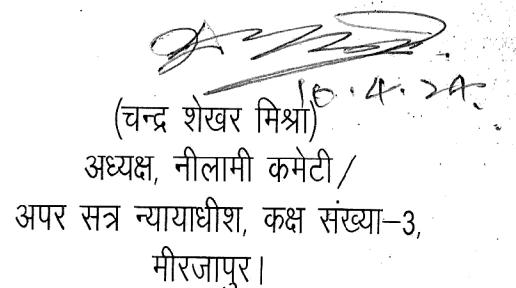 16.4.24.
(चन्द्र शेखर मिश्रा)
अध्यक्ष, नीलामी कमेटी /
अपर सत्र न्यायाधीश, कक्ष संख्या-3,
मीरजापुर।